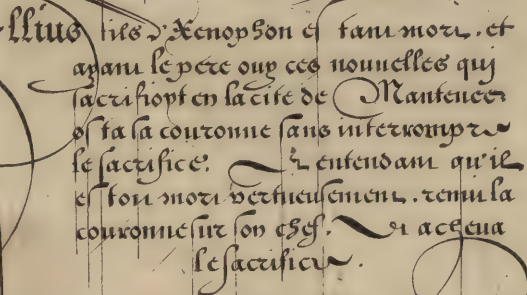 llius fils d'Xenophon estant mort. et
ayant le pere ouy ces nouvelles qui
sacrifioyt en la cite de Mantence
osta sa couronne sans interrompre
le sacrifice. Et entendant qu'il
estoit mort vertueusement. remit la
couronne sur son chef. Et acheva
le sacrifice.